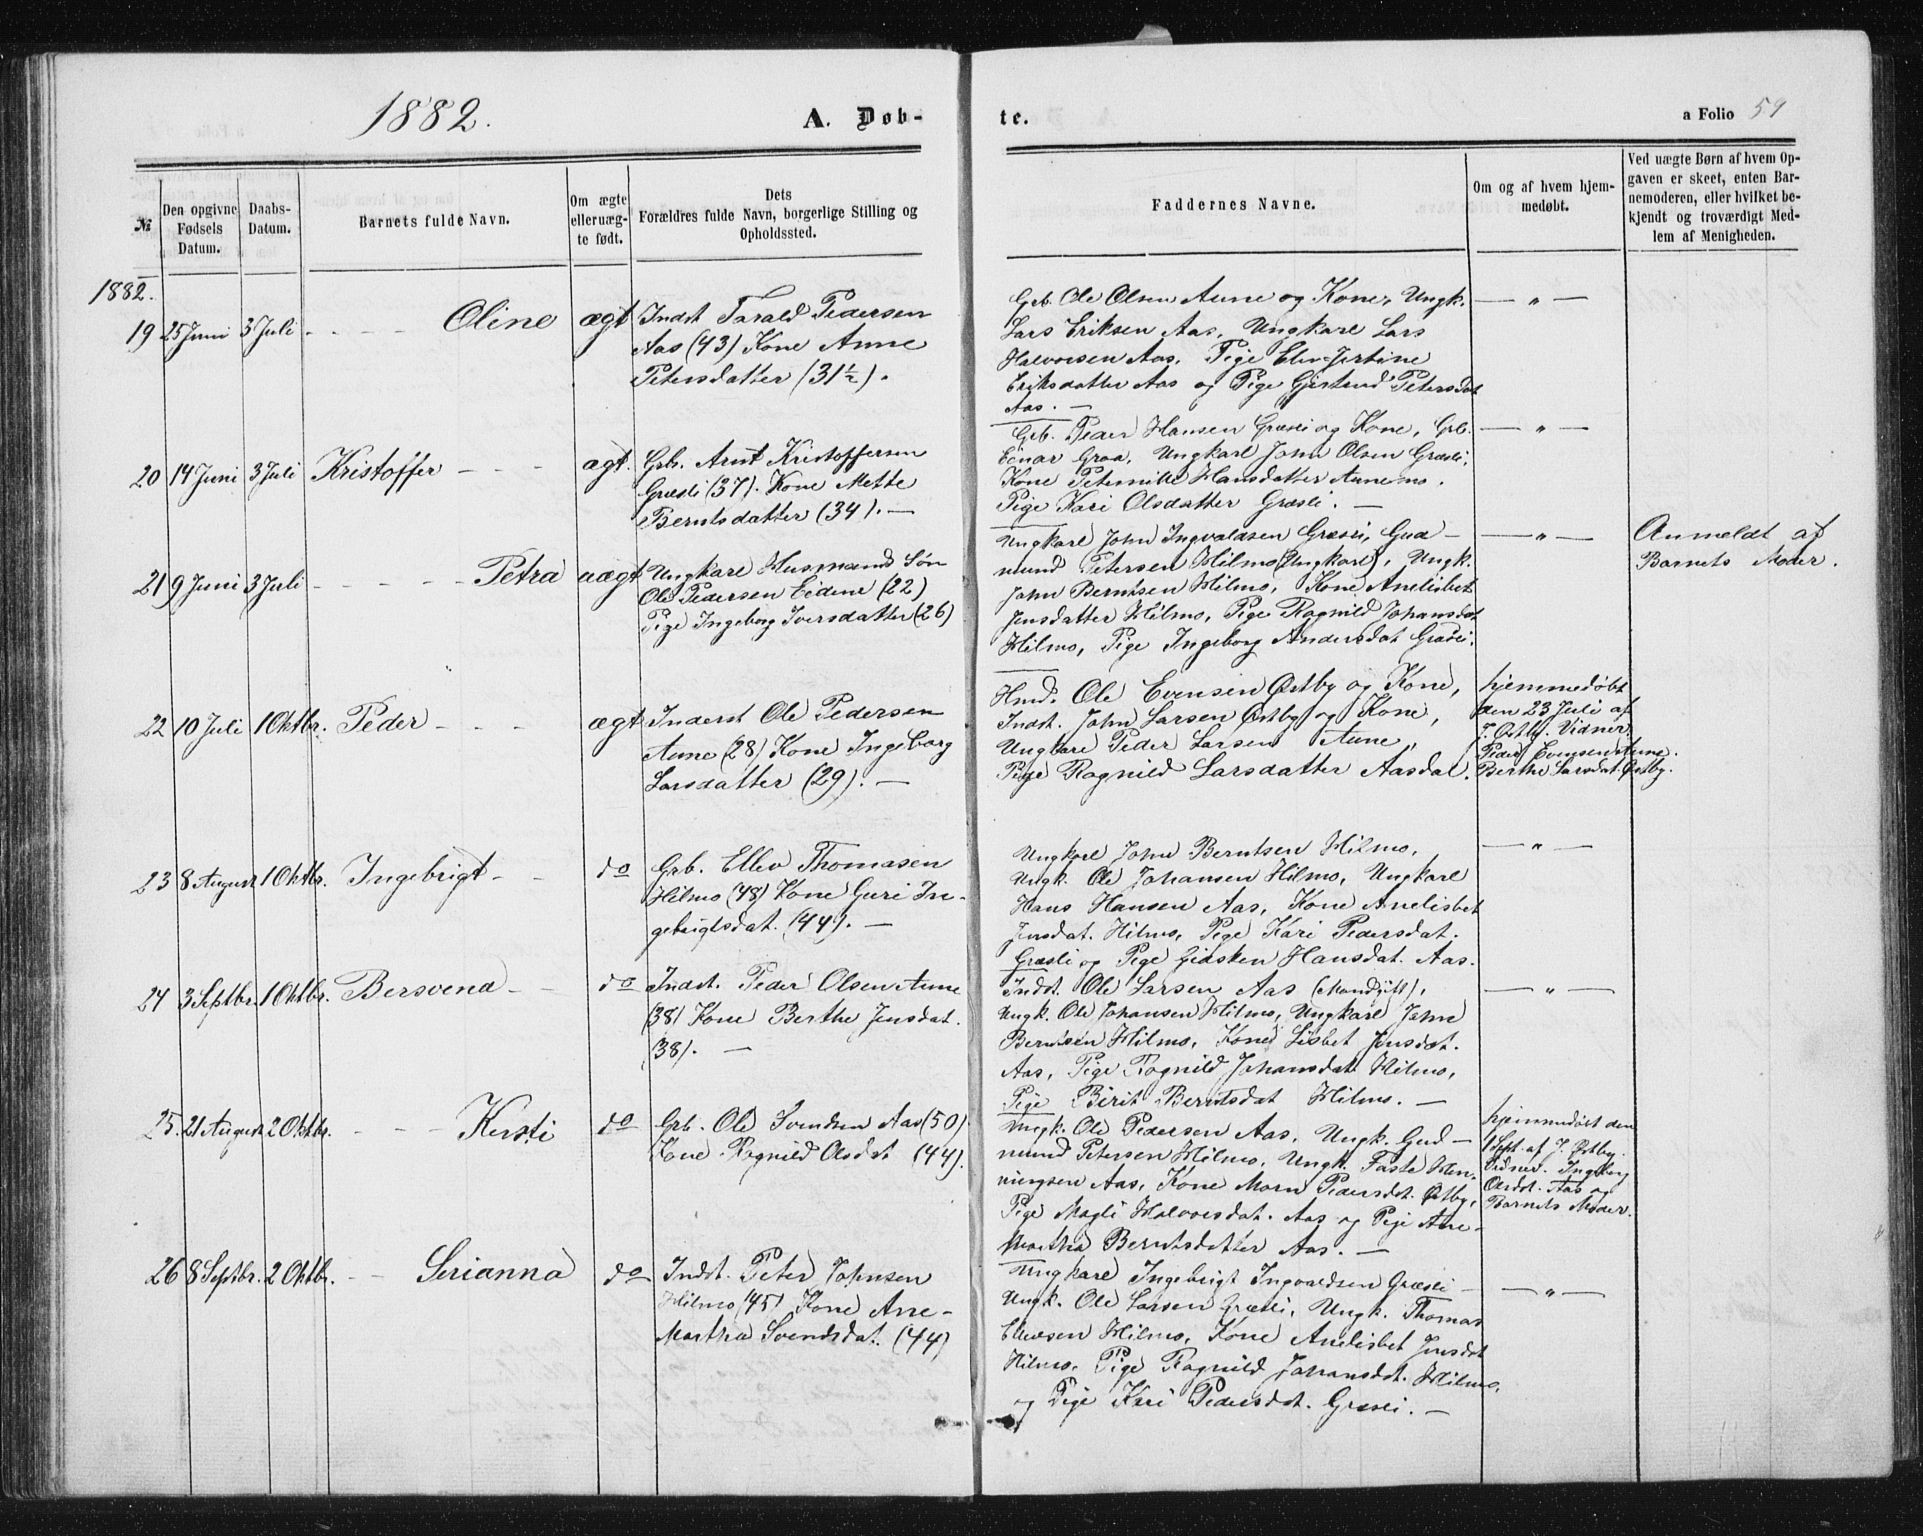 1882.
A. Døb-
te.
a Folio 59
№
Den opgivne Fødsels Datum.
Daabs-Datum.
Barnets fulde Navn.
Om ægte eller uæg-te født.
Dets Forældres fulde Navn, borgerlige Stilling og Opholdssted.
Faddernes Navne.
Om og af hvem hjem-medøbt.
Ved uægte Børn af hvem Op-gaven er skeet, enten Bar-nemoderen, eller hvilket be-kjendt og troværdigt Med-lem af Menigheden.
1882.
19 25 Juni 3 Juli - - - - Oline ægt Indst Tarald Pedersen
Aas (43) Kone Anne
Petersdatter (31½).
Grb. Ole Olsen Aune og Kone, Ungk. — " —
Lars Eriksen Aas, Ungkarl Lars
Halvorsen Aas, Pige Elen Jertine
Eriksdatter Aas og Pige Gjertrud Petersdat
Aas. —
20 14 Juni 3 Juli Kristoffer - - - ægt. Grb. Arnt Kristoffersen
Græsli (37). Kone Mette
Berntsdatter (34). —
Grb. Peder Hansen Græsli og Kone, Grb. — " —
Einar Graa, Ungkarl John Olsen Græsli,
Kone Peternille Hansdatter Aunemo,
Pige Kari Olsdatter Græsli. —
21 9 Juni 3 Juli - - - - - Petra uægt Ungkarl Husmands Søn
Ole Pedersen Eidene (22)
Pige Ingeborg Iversdatter (26)
Ungkarl John Ingvaldsen Græsli, Gud- — " — Anmeldt af
mund Petersen Hilmo (Ungkarl), Ungk. Barnets Moder.
John Berntsen Hilmo, Kone Anelisbet
Jensdatter Hilmo, Pige Ragnild Johansdat
Hilmo, Pige Ingeborg Andersdat Græsli.
22 10 Juli 1 Oktbr. Peder - - - ægt Inderst Ole Pedersen
Aune (28) Kone Ingeborg
Larsdatter (29). —
Hmd. Ole Evensen Østby og Kone, hjemmedøbt
Indst. John Larsen Østby og Kone, den 23 Juli af
Ungkarl Peder Larsen Aune, J. Østby. Vidner.
Peder Evensen Aune.
Pige Ragnild Larsdatter Aasdal. Berthe Larsdat. Østby.
23 8 August 1 Oktbr. Ingebrigt - - do Grb. Ellev Thomasen
Hilmo (48) Kone Guri In-
gebrigtsdat. (44). —
Ungkarl John Berntsen Hilmo, — " —
Ungk. Ole Johansen Hilmo, Ungkarl
Hans Hansen Aas, Kone Anelisbet
Jensdat. Hilmo, Pige Kari Pedersdat.
Græsli og Pige Gidsken Hansdat. Aas.
24 3 Septbr. 1 Oktbr. Bersvend - - do Indst. Peder Olsen Aune
(38) Kone Berthe Jensdat.
(38). —
Indst. Ole Larsen Aas, — " —
Ungk. Ole Johansen Hilmo, Ungkarl John
Berntsen Hilmo, Kone Lisbet Jensdat.
Aas, Pige Ragnild Johansdat Hilmo,
Pige Birit Berntsdat Hilmo. —
25. 21 August 2 Oktbr. - - - Kersti do Grb. Ole Svendsen Aas (50)
Kone Ragnild Olsdat (44).
Ungk. Ole Pedersen Aas, Ungk. Gud- hjemmedøbt den
mund Petersen Hilmo, Ungk. Faste Hen- 1 Sept. af J. Østby.
Vidner. Ingeborg
ningsen Aas, Kone Marn Pedersdt. Østby, Olsdt. Aas og
Pige Magli Halvorsdat. Aas og Pige Ane- Barnets Moder.
Martha Berntsdatter Aas. —
26 8 Septbr. 2 Oktbr. - - Serianna do Indst. Peter Johnsen
Hilmo (45) Kone Ane-
Martha Svendsdat. (44)
Ungkarl Ingebrigt Ingvaldsen Græsli — " —
Ungk. Ole Larsen Græsli, Ungk. Thomas
Ellevsen Hilmo, Kone Anelisbet Jensdat
Hilmo, Pige Ragnild Johansdt. Hilmo,
og Pige Kari Pedersdat. Græsli. —